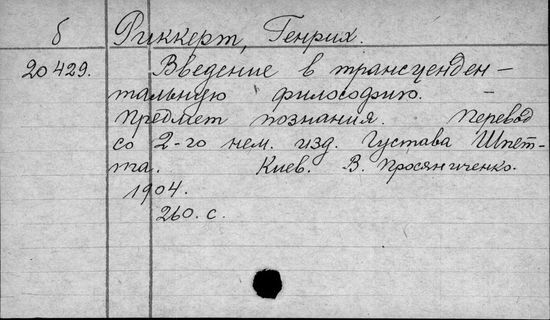 б Риккерт, Генрих.
20429. Введение в трансценден-
тальную философию.
Предмет познания. Перевод
со 2-го нем. изд. Густава Шпет-
та. Киев. В. Просяниченко.
1904.
260. с.